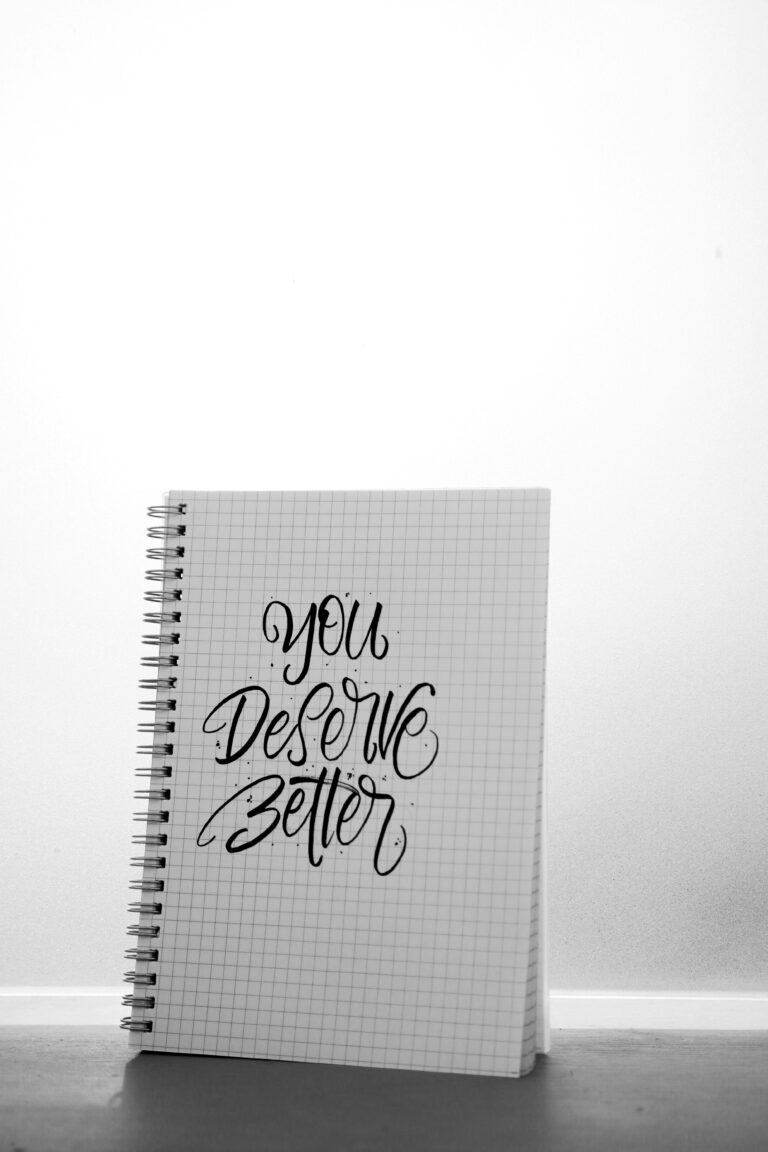 you
Deserve
Better